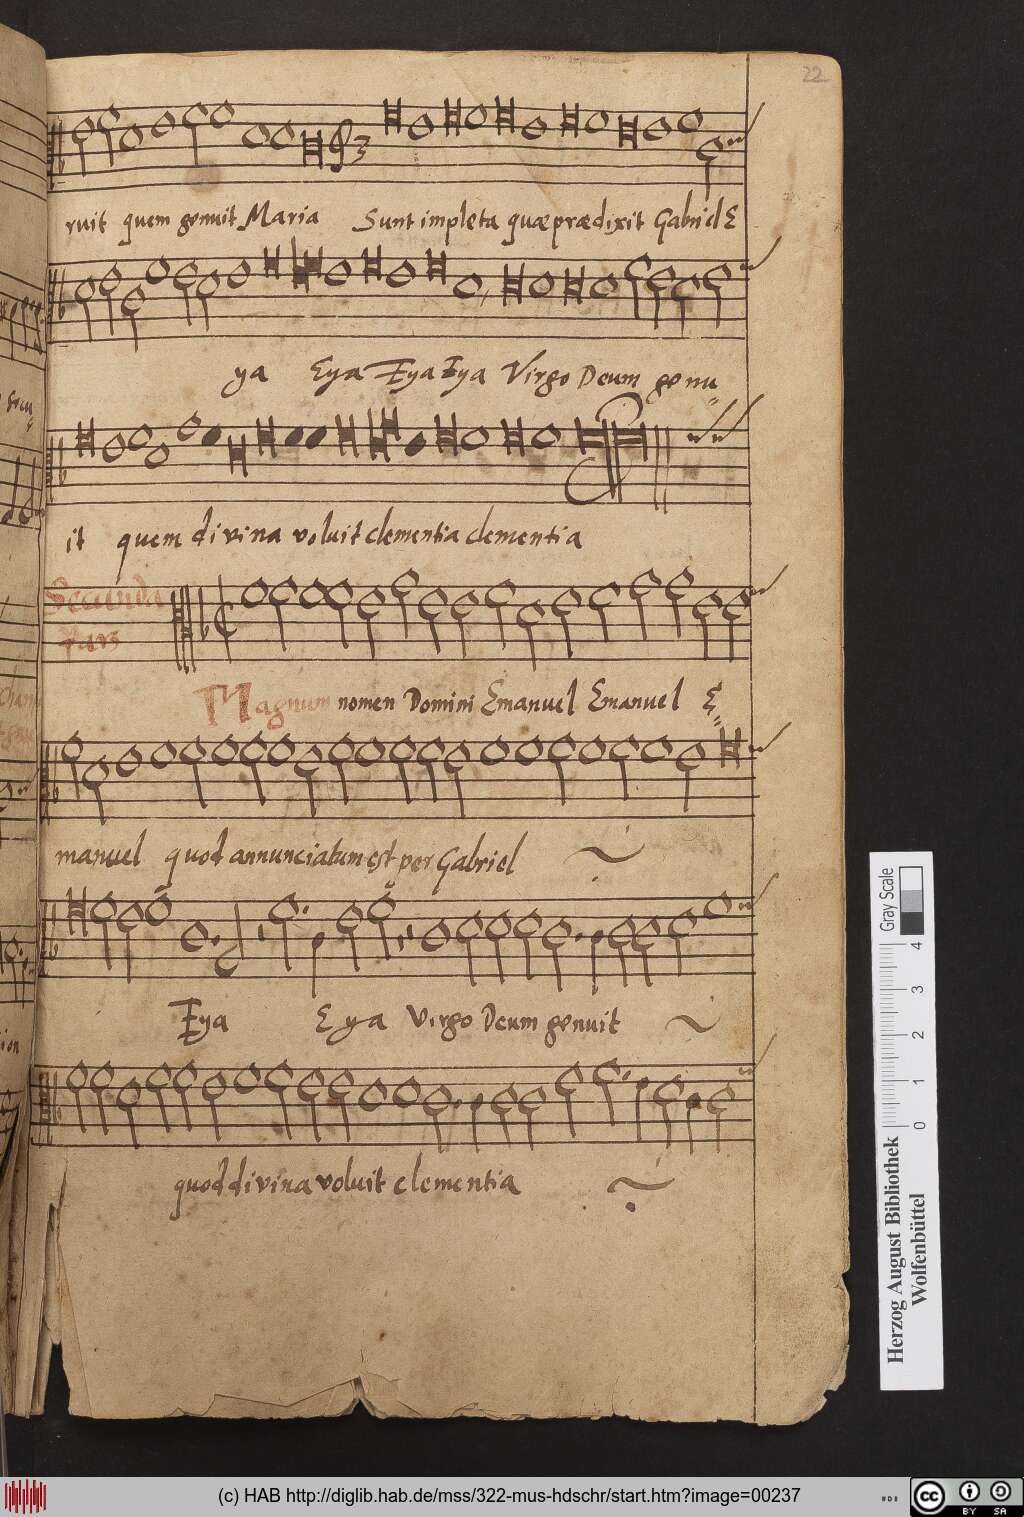 22
ruit quem genuit Maria Sunt impleta quæ prædixit Gabriel E
ya Eya Eya Eya Virgo Deum genu
it quem divina voluit clementia clementia
Secunda
Pars
Magnum nomen Domini Emanuel Emanuel E
manuel quod annunciatum est per Gabriel
Eya Eya Virgo Deum genuit
quod divina voluit clementia
Gray Scale
0 1 2 3 4
Herzog August Bibliothek
Wolfenbüttel
(c) HAB http://diglib.hab.de/mss/322-mus-hdschr/start.htm?image=00237
cc BY SA